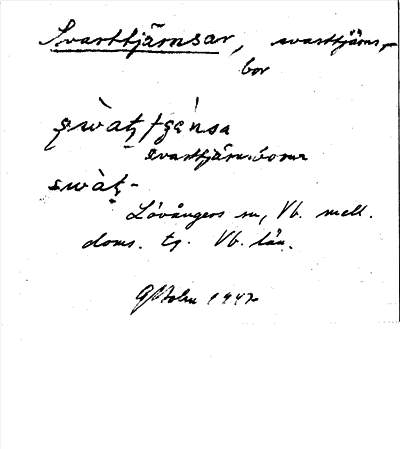 Svarttjärnsar, svarttjärns-
bor
svarttjärnsborna
swàt-
Lövångers sn, Vb. mell.
doms. tg. Vb. län.
G Holm 1947